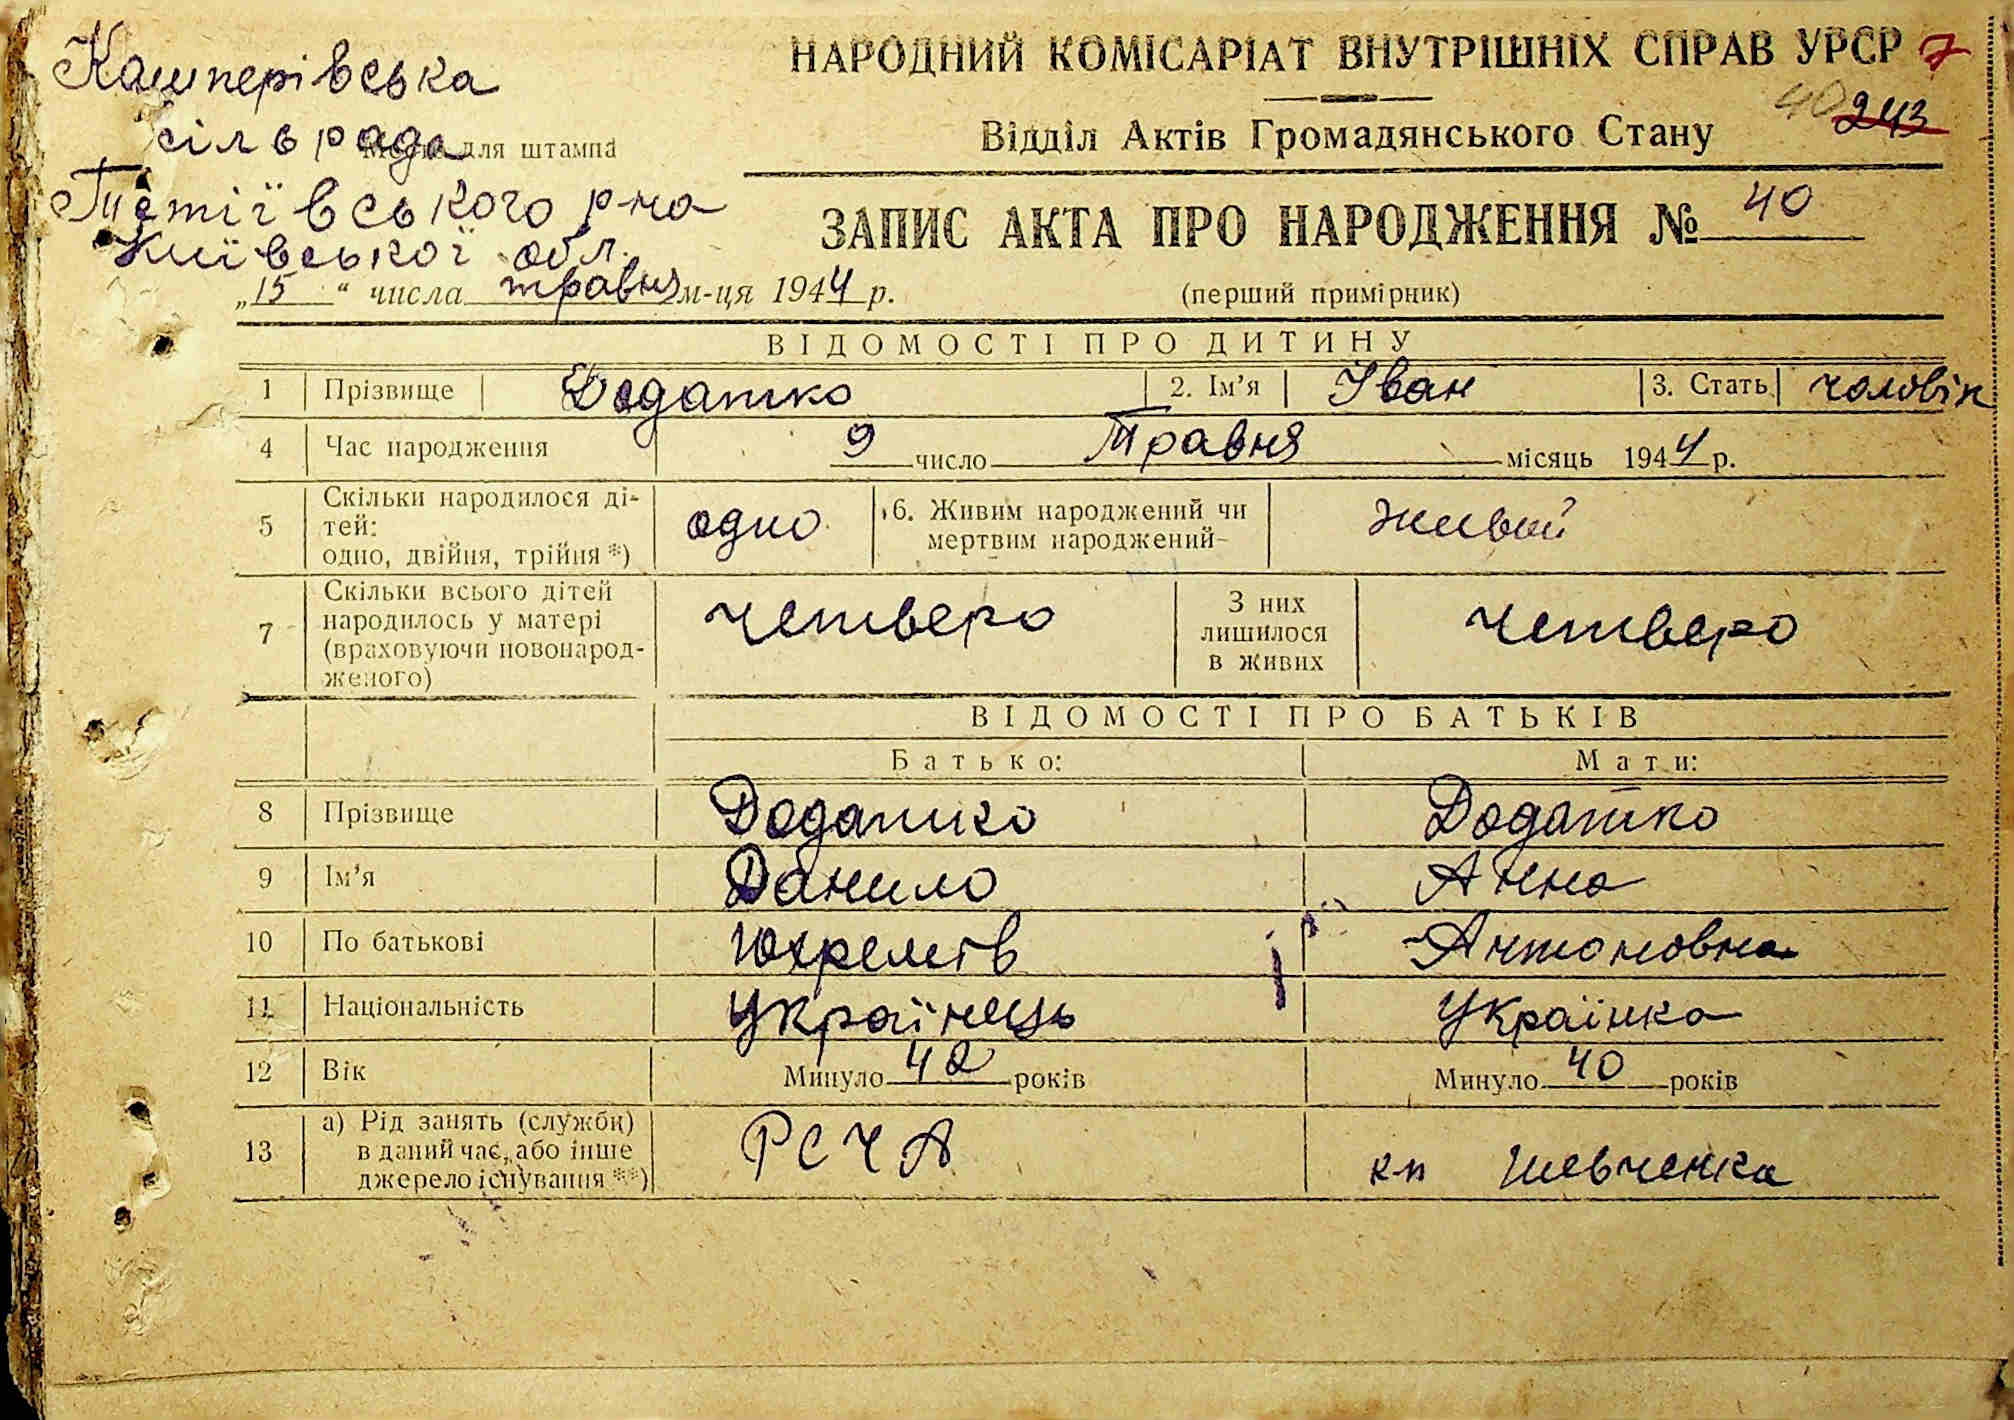 Кашперівська
сільрада
Місце для штампа
Тетіївського р-на
Київської обл.
НАРОДНИЙ КОМІСАРІАТ ВНУТРІШНІХ СПРАВ УРСР 7
40 243
Відділ Актів Громадянського Стану
ЗАПИС АКТА ПРО НАРОДЖЕННЯ № 40
„15“ числа травня м-ця 1944 р.
(перший примірник)
ВІДОМОСТІ ПРО ДИТИНУ
1 Прізвище Додатко 2. Ім'я Іван 3. Стать чоловік
4 Час народження 9 число Травня місяць 1944 р.
5 Скільки народилося ді-
тей:
одно, двійня, трійня *) одно 6. Живим народжений чи
мертвим народжений живой
7 Скільки всього дітей
народилось у матері
(враховуючи новонарод-
женого) четверо З них
лишилося
в живих четверо
ВІДОМОСТІ ПРО БАТЬКІВ
Батько: Мати:
8 Прізвище Додатко Додатко
9 Ім'я Данило Анна
10 По батькові Юхремів Антоновна
11 Національність Українець Українка
12 Вік Минуло 42 років Минуло 40 років
13 а) Рід занять (служби)
в даний час, або інше
джерело існування **) РСЧА кп Шевченка